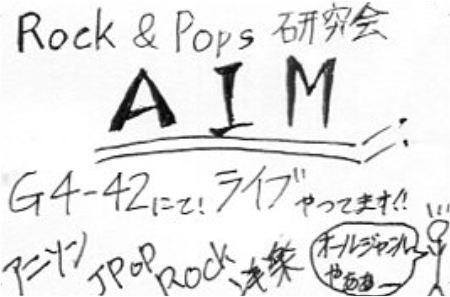 Rock & Pops 研究会
AIM
G4-42にて!ライブやってます!!
アニソン JPOP ROCK 洋楽
オールジャンル
やぁぁー